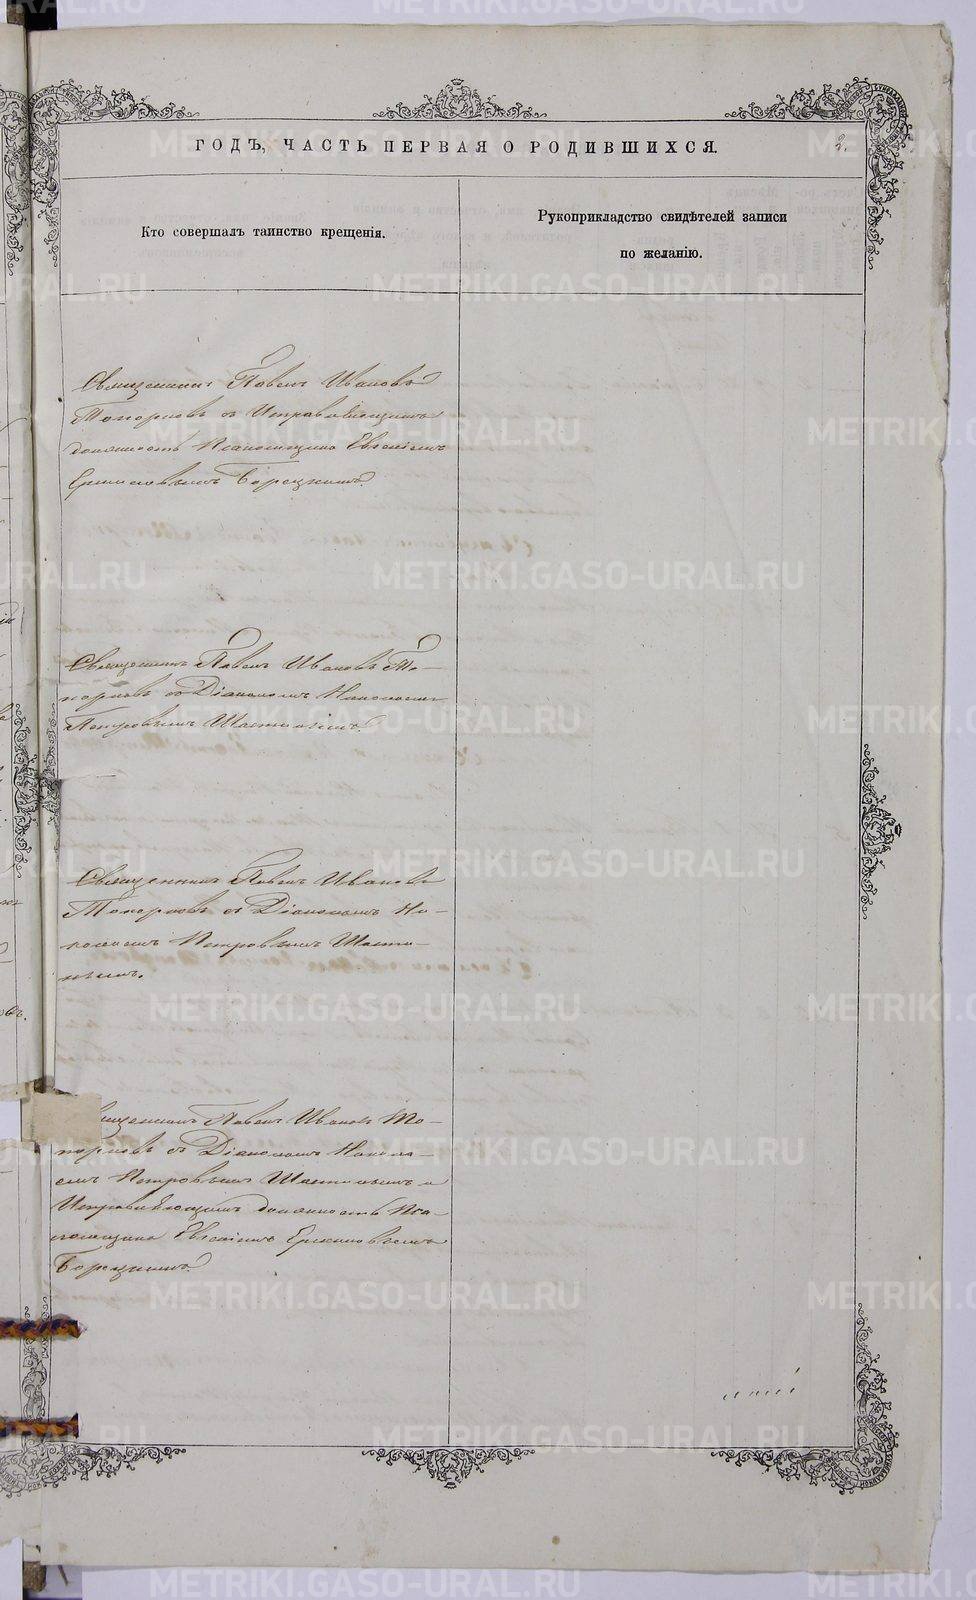 ГОДЪ, ЧАСТЬ ПЕРВАЯ О РОДИВШИХСЯ.
2.
Кто совершалъ таинство крещенія.
Рукоприкладство свидѣтелей записи
по желанію.
Священникъ Павелъ Ивановъ
Топорковъ съ Исправляющимъ
должность Псаломщика Евгеніемъ
Ермиловымъ Борецкимъ.
Священникъ Павелъ Ивановъ То-
порковъ съ Діакономъ Николаемъ
Петровымъ
Священникъ Павелъ Ивановъ
Топорковъ съ Діакономъ Ни-
колаемъ Петровымъ
Священникъ Павелъ Ивановъ То-
порковъ съ Діакономъ Никола-
емъ Петровымъ и
Исправляющимъ должность Пса-
ломщика Евгеніемъ
Борецкимъ.
METRIKI.GASO-URAL.RU